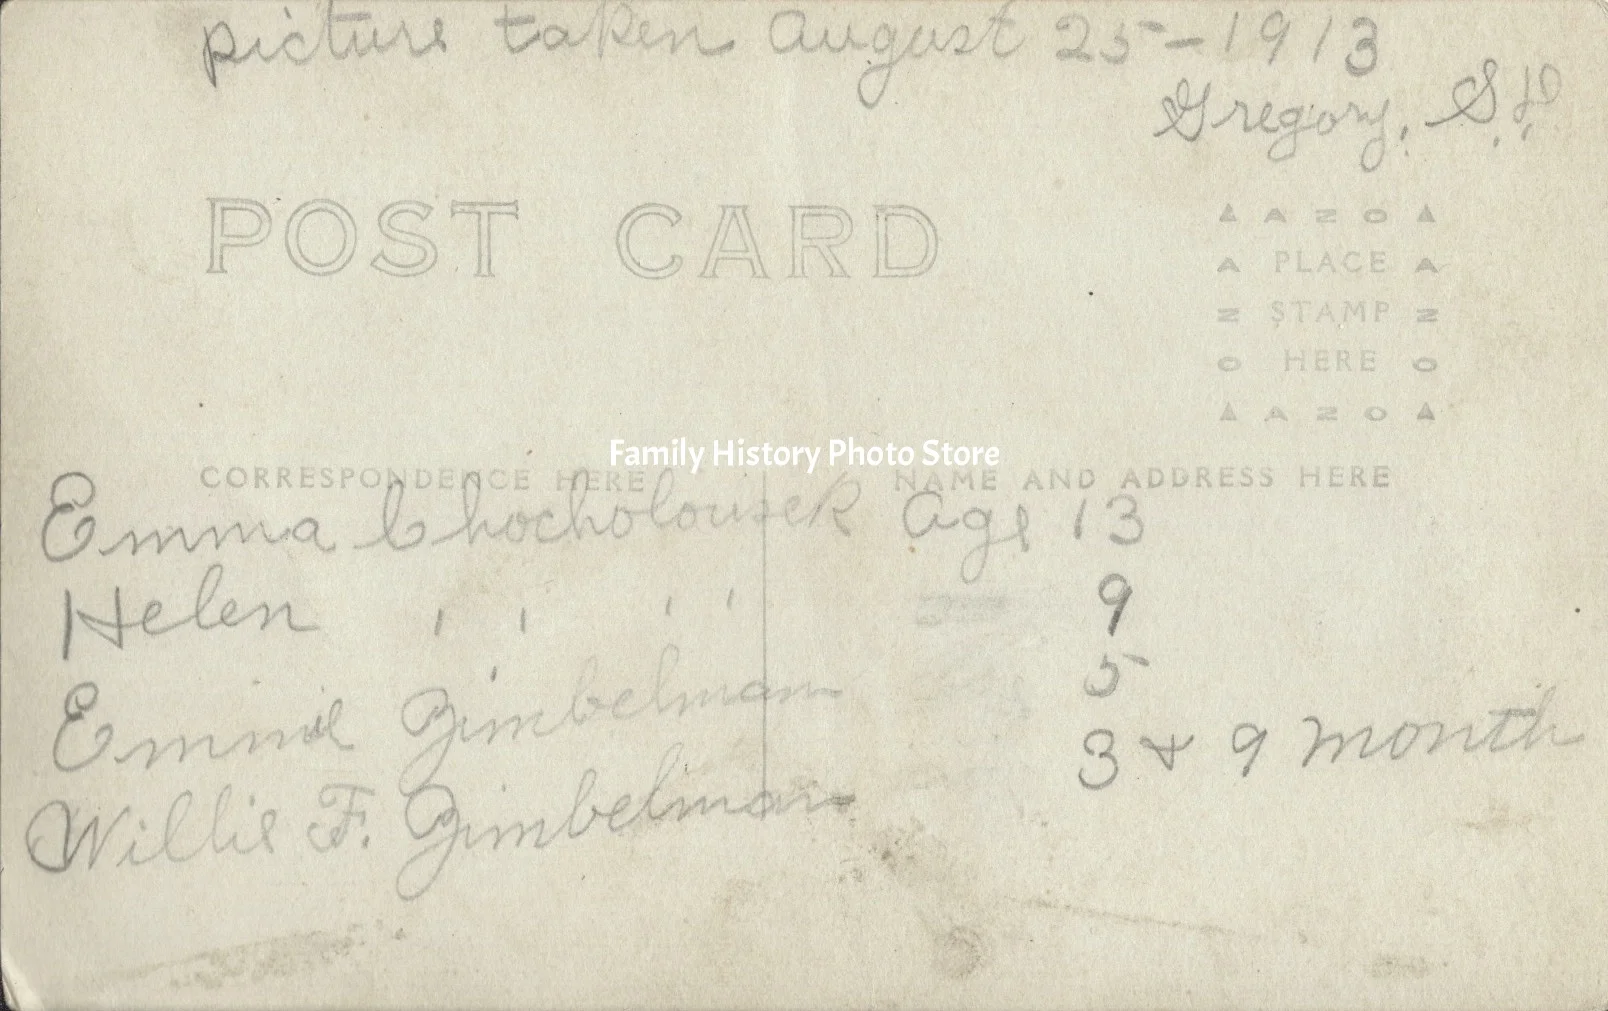 picture taken August 25-1913
Gregory, S.D.
POST CARD
▲ A Z O ▲
A PLACE A
Z STAMP Z
O HERE O
▲ A Z O ▲
Family History Photo Store
CORRESPONDENCE HERE
NAME AND ADDRESS HERE
Emma Chocholousek Age 13
Helen " " 9
Emmie Zimbelman 5
Willie F. Zimbelman 3 & 9 month